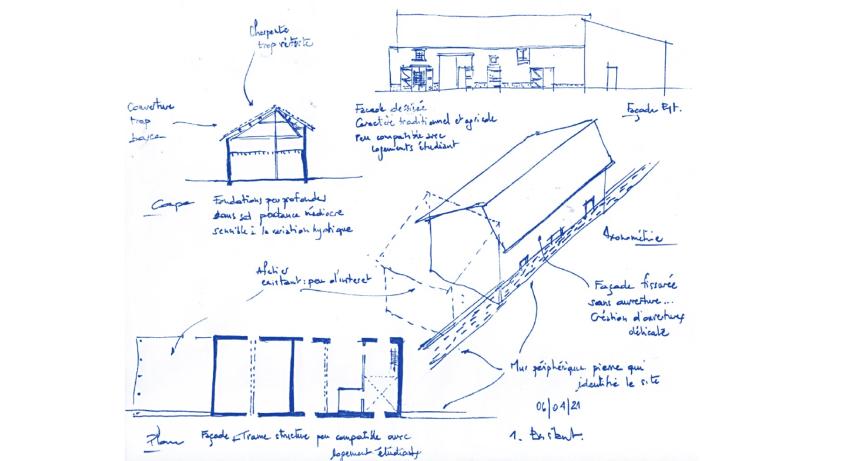 Charpente
trop vétuste
Couverture
trop
basse
Coupe
Fondations peu profondes
dans sol portance médiocre
sensible à la variation hydrique
Façade
Caractère traditionnel et agricole
Peu compatible avec
logements étudiant
Façade Est.
Axonométrie
Atelier
existant : peu d'intéret
Façade fissurée
sans ouverture...
Création d'ouvertures
délicate
Mur périphérique pierre qui
identifie le site
06/04/21
1. Existant.
Plan
Façade + Trame structure peu compatible avec
logement étudiants